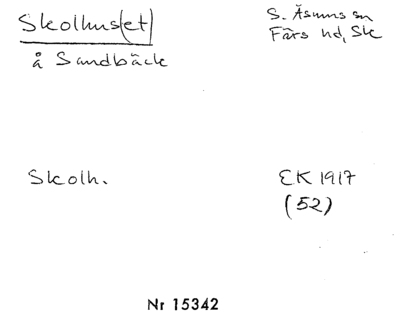 Skolhus(et)
å Sandbäck
S. Åsums sn
Färs hd, Sk
Skolh.
EK 1917
(52)
Nr 15342